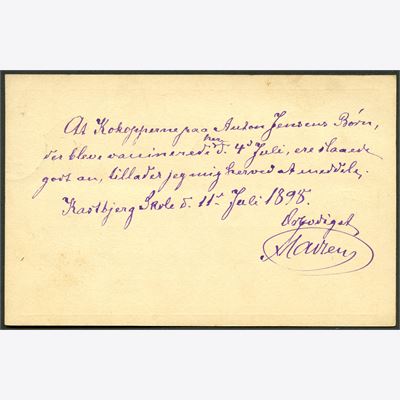 At Kokopperne paa Anton Jensens Børn,
her
der bleve vaccinerede d. 4d Juli, ere slaaede
godt an, tillader jeg mig herved at meddele.
Kastbjerg Skole d. 11te Juli 1898.
Ærbødigst